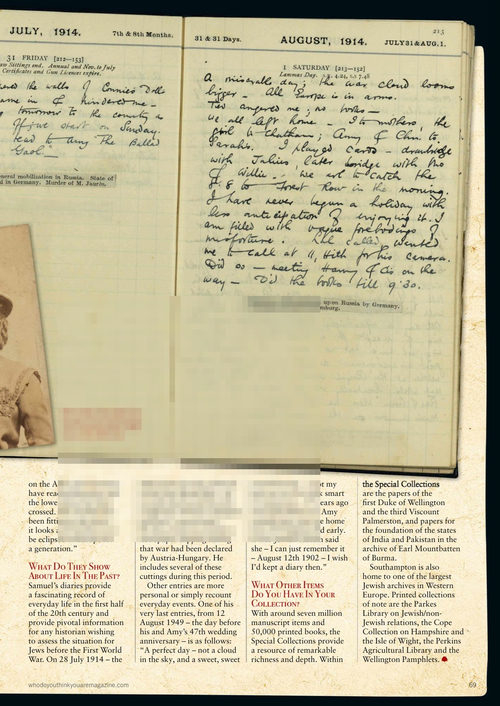 JULY, 1914. 7th & 8th Months.
31 FRIDAY [212—153]
Certificates and Gun Licences expire.
the walls of Connie's Doll
tomorrow to the country as
start on Sunday.
read to Amy the Ballad
Gaol"
general mobilization in Russia. State of
in Germany. Murder of M. Jaurès.
213
31 & 31 Days. AUGUST, 1914. JULY 31 & AUG. 1.
1 SATURDAY [213—152]
Lammas Day.
A miserable day; the war cloud looms
bigger. All Europe is in arms.
Ted angered me, no books
we all left home - I to mothers the
girl to Chatham; Amy & Chn. to
Sarahs. I played cards -
with Julius, later bridge with
& Willie. We are to catch the
to Forest Row in the morning.
I have never begun a holiday with
less anticipation of enjoying it. I
am filled with vague forebodings of
misfortune. called wanted
me to call at for his camera.
Did so - meeting Harry & on the
way - Did the books till 9.30.
upon Russia by Germany.
on the A
have rea
the lowe
crossed.
been fitti
it looks a
be eclips
a generation."
WHAT DO THEY SHOW
ABOUT LIFE IN THE PAST?
Samuel's diaries provide
a fascinating record of
everyday life in the first half
of the 20th century and
provide pivotal information
for any historian wishing
to assess the situation for
Jews before the First World
War. On 28 July 1914 – the
that war had been declared
by Austria-Hungary. He
includes several of these
cuttings during this period.
Other entries are more
personal or simply recount
everyday events. One of his
very last entries, from 12
August 1949 – the day before
his and Amy's 47th wedding
anniversary – is as follows:
"A perfect day – not a cloud
in the sky, and a sweet, sweet
t my
s smart
ears ago
Amy
e home
d early.
said
she – I can just remember it
– August 12th 1902 – I wish
I'd kept a diary then."
WHAT OTHER ITEMS
DO YOU HAVE IN YOUR
COLLECTION?
With around seven million
manuscript items and
50,000 printed books, the
Special Collections provide
a resource of remarkable
richness and depth. Within
the Special Collections
are the papers of the
first Duke of Wellington
and the third Viscount
Palmerston, and papers for
the foundation of the states
of India and Pakistan in the
archive of Earl Mountbatten
of Burma.
Southampton is also
home to one of the largest
Jewish archives in Western
Europe. Printed collections
of note are the Parkes
Library on Jewish/non-
Jewish relations, the Cope
Collection on Hampshire and
the Isle of Wight, the Perkins
Agricultural Library and the
Wellington Pamphlets.
whodoyouthinkyouaremagazine.com
69